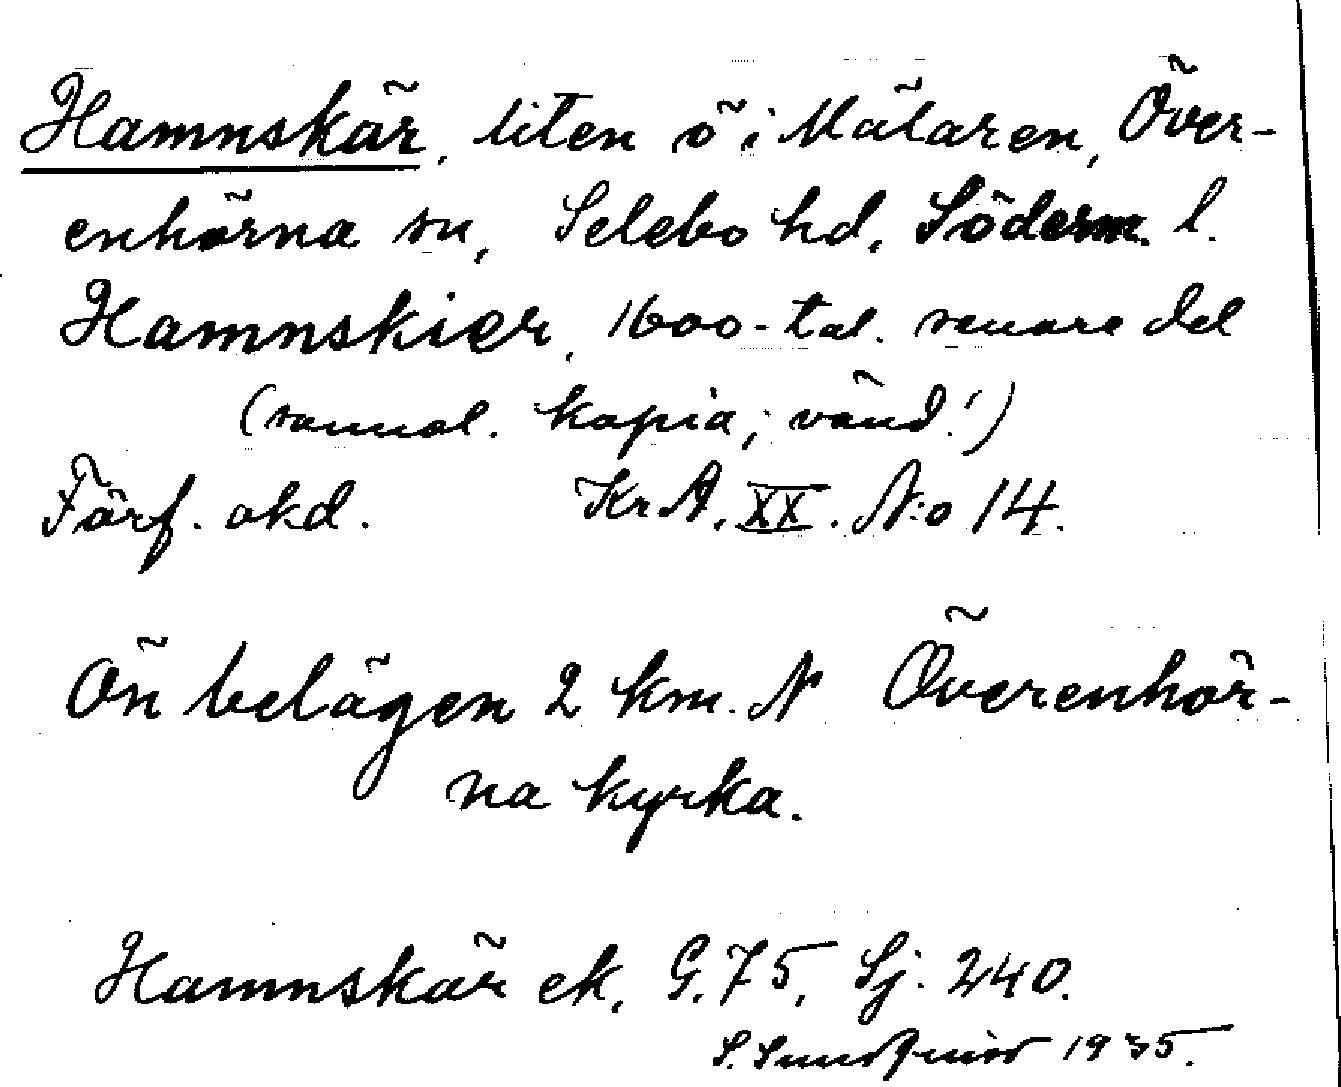 Hamnskär, liten ö i Mälaren, Över-
enhörna sn, Selebo hd, Söderm. l.
Hamnskier, 1600-tal. senare del
(sannol. kopia; vänd!)
Förf. okd. Kr A. XX. N:o 14.
Ön belägen 2 km. N Överenhör-
na kyrka.
Hamnskär ek. G. 75, Sj. 240.
S. Sundquist 1935.